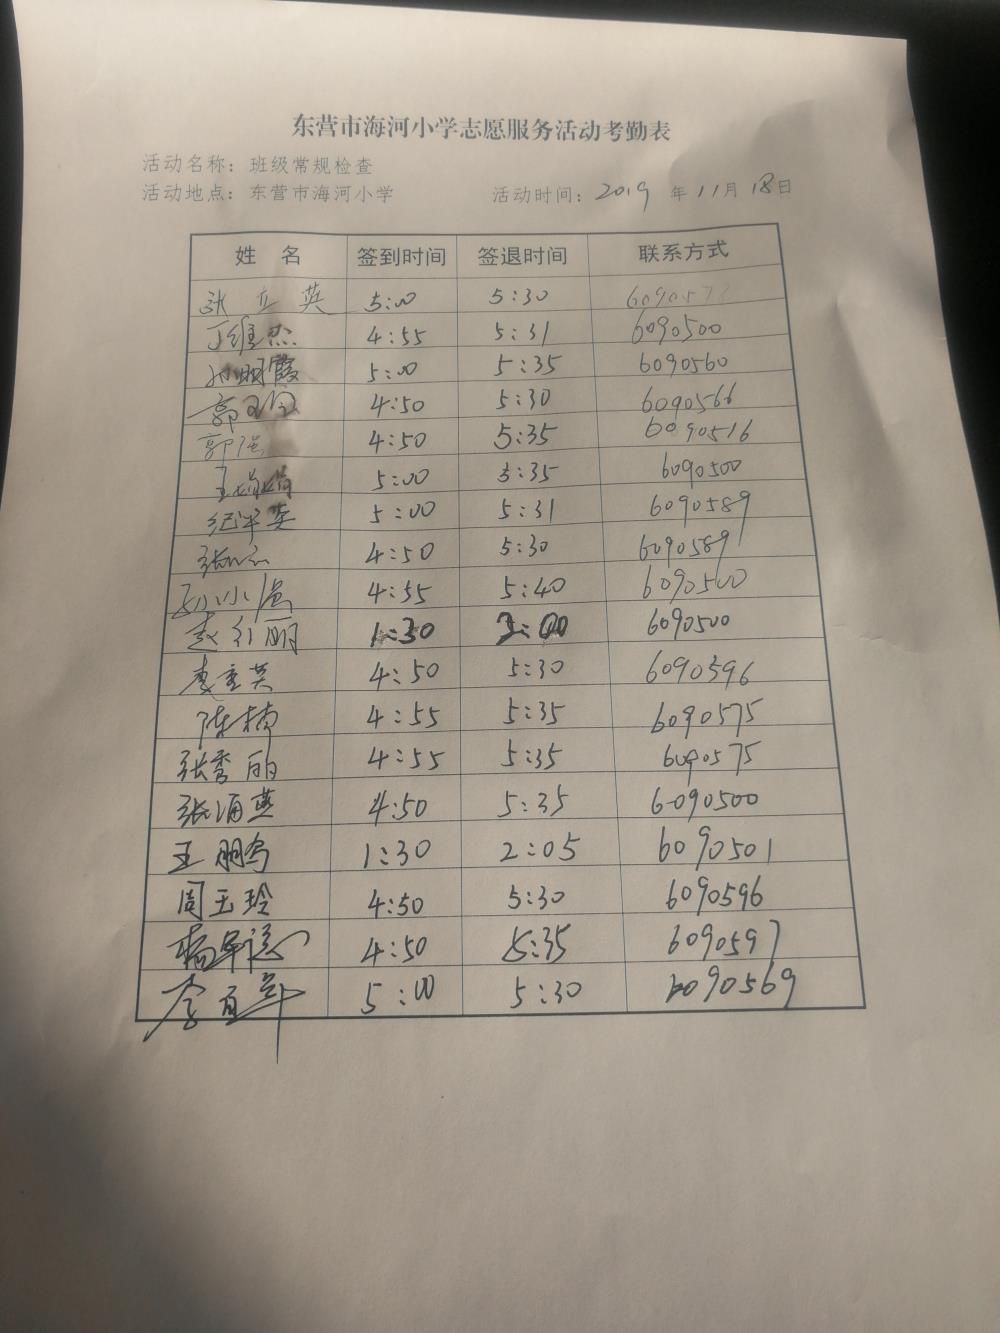 东营市海河小学志愿服务活动考勤表
活动名称：班级常规检查
活动地点：东营市海河小学 活动时间：2019年11月18日
姓 名 签到时间 签退时间 联系方式
张立英 5:00 5:30 609057
丁维杰 4:55 5:31 6090500
孙明霞 5:00 5:35 6090560
郭 4:50 5:30 6090566
郭强 4:50 5:35 6090516
王娟娟 5:00 5:35 6090500
纪华英 5:00 5:31 6090589
张 4:50 5:30 6090589
孙小 4:55 5:40 6090500
赵红丽 1:30 6090500
李重英 4:50 5:30 6090596
陈楠 4:55 5:35 6090575
张秀丽 4:55 5:35 6090575
张海燕 4:50 5:35 6090500
王鹏鸟 1:30 2:05 6090501
周玉玲 4:50 5:30 6090596
杨 4:50 5:35 6090597
李百军 5:00 5:30 6090569